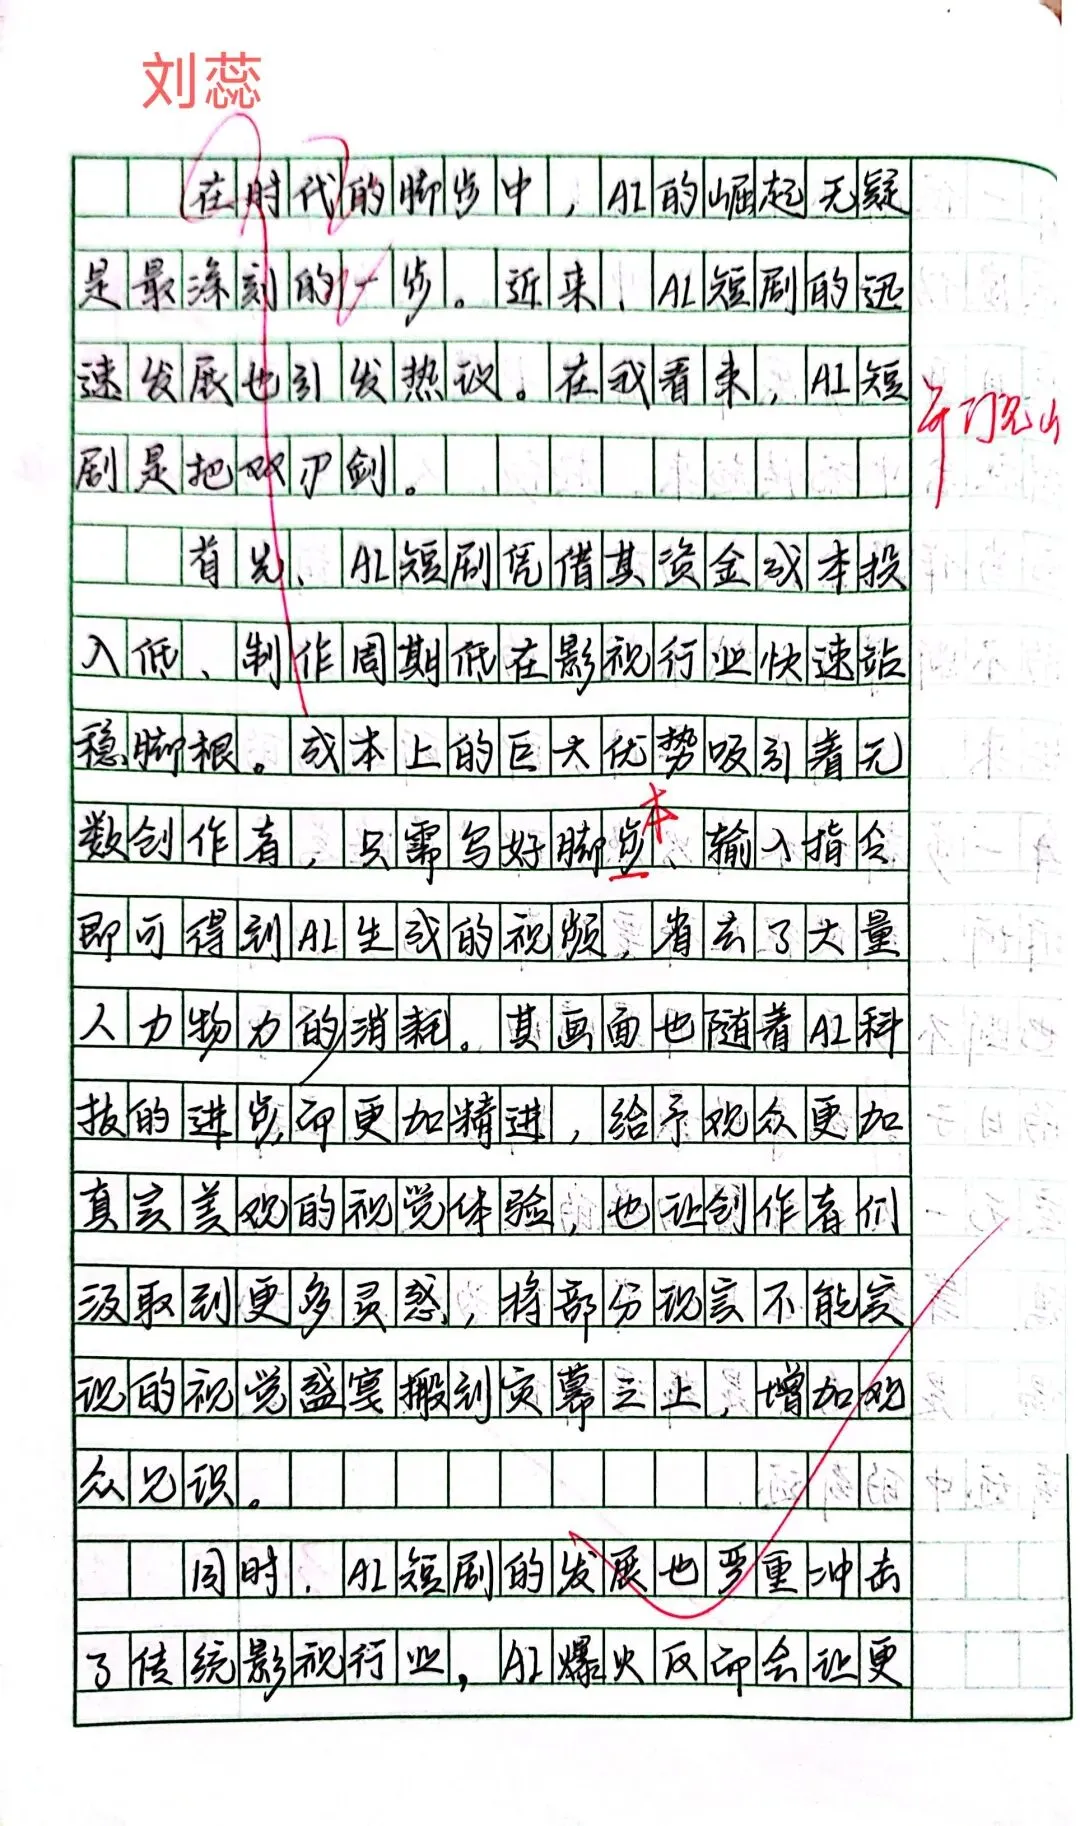 刘蕊
在时代的脚步中，AI的崛起无疑
是最深刻的一步。近来，AI短剧的迅
速发展也引发热议。在我看来，AI短
开门见山
剧是把双刃剑。
首先，AI短剧凭借其资金成本投
入低、制作周期低在影视行业快速站
稳脚根。成本上的巨大优势吸引着无
本
数创作者，只需写好脚步、输入指令
即可得到AI生成的视频，省去了大量
人力物力的消耗。其画面也随着AI科
技的进步而更加精进，给予观众更加
真实美观的视觉体验，也让创作者们
汲取到更多灵感，将部分现实不能实
现的视觉盛宴搬到荧幕之上，增加观
众见识。
同时，AI短剧的发展也严重冲击
了传统影视行业，AI爆火反而会让更